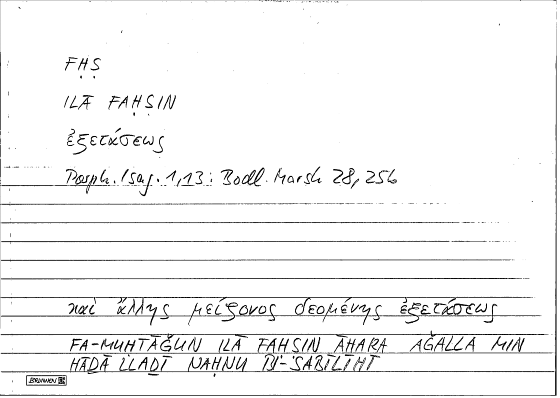 FḤṢ
ILĀ FAḤṢIN
ἐξετάσεως
Porph. Isag. 1,13: Bodl. Marsh 28, 256
καὶ ἄλλης μείζονος δεομένης ἐξετάσεως
FA-MUHTĀǦUN ILĀ FAHṢIN ĀHARA AǦALLA MIN
HĀḎĀ LLAḎĪ NAḤNU BI-SABĪLIHĪ
BRUNNEN